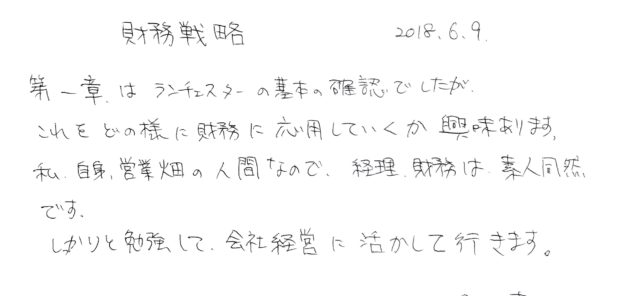 財務戦略 2018.6.9.
第一章.は ランチェスターの基本の確認でしたが.
これを どの様に財務に応用していくか 興味あります.
私.自身.営業畑の人間なので. 経理.財務は.素人同然.
です.
しかりと勉強して.会社経営に活かして行きます。